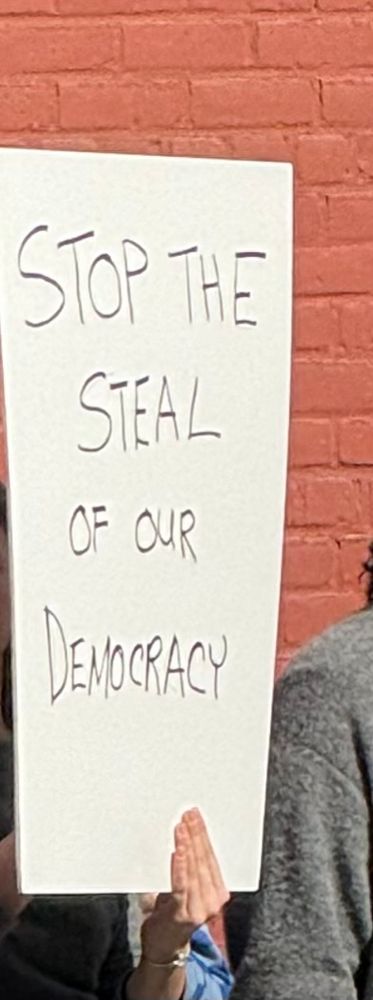 STOP THE
STEAL
OF OUR
DEMOCRACY